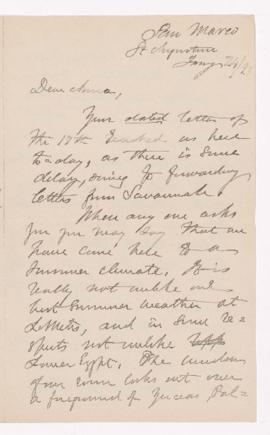 San Marco
St Augustine
Dear Anna,
Your dated letter of
the 15th reached us here
to-day, as there is some
delay, owing to forwarding
letters from Savannah.
When any one asks
for you may say that we
have come here to a
summer climate. It is
really not unlike our
best summer weather at
and in some re-
spects not unlike
Lower Egypt. The windows
of our room looks out over
a foreground of Yuccas Pal-